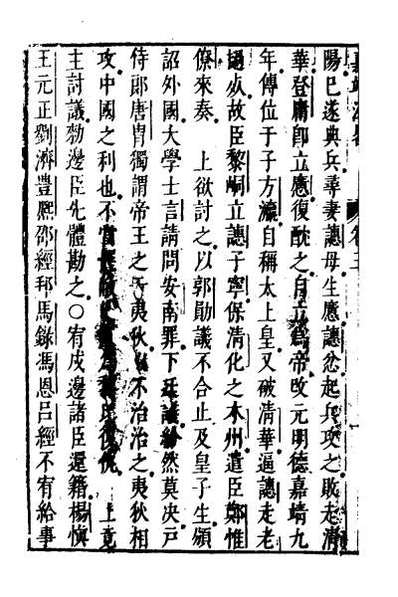 陽巳遂與兵尋妻譓母生應譓忿起兵攻之敗走清
華登庸卽立應復酖之自立爲帝改元明德嘉靖九
年傳位于子方瀛自稱太上皇又破清華逼譓走老
撾故臣黎嗣立譓子寧保清化之木州遣臣鄭惟
僚來奏　上欲討之以郭勛議不合止及皇子生頒
詔外國大學士言請問安南罪下廷議紛然莫决戸
侍郎唐胄獨謂帝王之于夷狄以不治治之夷狄相
攻中國之利也不當　上竟
主討議勑邊臣先體勘之○宥戍邊諸臣還籍楊慎
王元正劉濟豐熈邵經邦馬錄馮恩呂經不宥給事